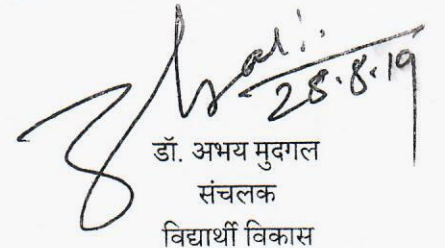 28.8.19
डॉ. अभय मुदगल
संचलक
विद्यार्थी विकास